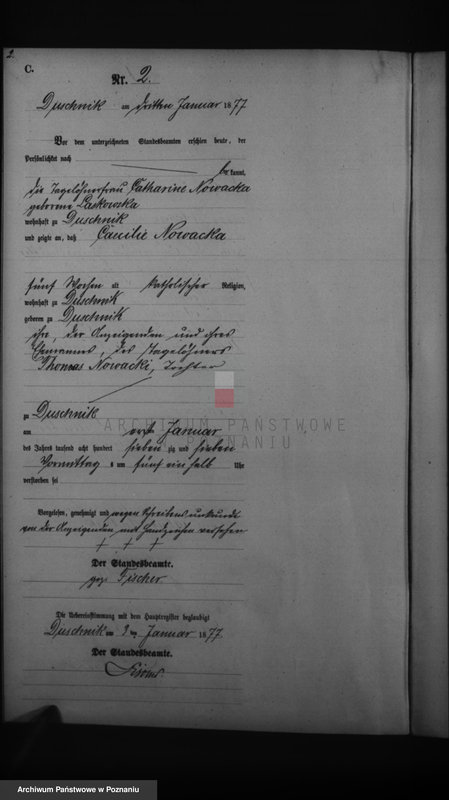 2.
C.
Nr. 2.
Duschnik am dritten Januar 1877
Vor dem unterzeichneten Standesbeamten erschien heute, der
Persönlichkeit nach
bekannt,
die Tagelöhnerfrau Catharine Nowacka
geborene Laskowska
wohnhaft zu Duschnik
und zeigte an, daß Caecilie Nowacka
fünf Wochen alt katholischer Religion,
wohnhaft zu Duschnik
geboren zu Duschnik
ihr, der Anzeigenden und ihres
Ehemannes, des Tagelöhners
Thomas Nowacki, Tochter
zu Duschnik
am Januar
des Jahres tausend acht hundert sieben zig und sieben
Vormittag s um fünf ein halb Uhr
verstorben sei
Vorgelesen, genehmigt und wegen Schreibens unkunde
von der Anzeigenden mit Handzeichen versehen
+ + +
Der Standesbeamte.
gez. Fischer
Die Uebereinstimmung mit dem Hauptregister beglaubigt
Duschnik am 3 ten Januar 1877
Der Standesbeamte.
ARCHIWUM PAŃSTWOWE
POZNANIU
Archiwum Państwowe w Poznaniu